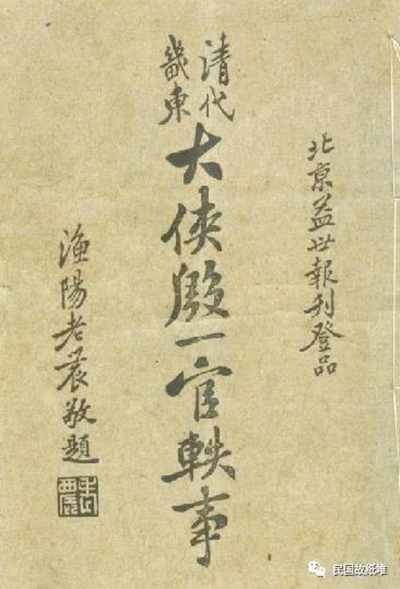 北京益世報刊登品
清代
畿東
大俠殷一官軼事
漁陽老農敬題
民国故纸堆